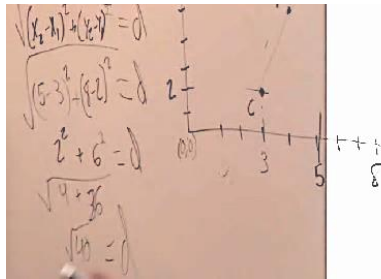 √(x₂-x₁)²+(y₂-y₁)² = d
√(5-3)²+(8-2)² = d
2² + 6² = d
√4 + 36
√40 = d
2
C
(0,0)
3
5
8